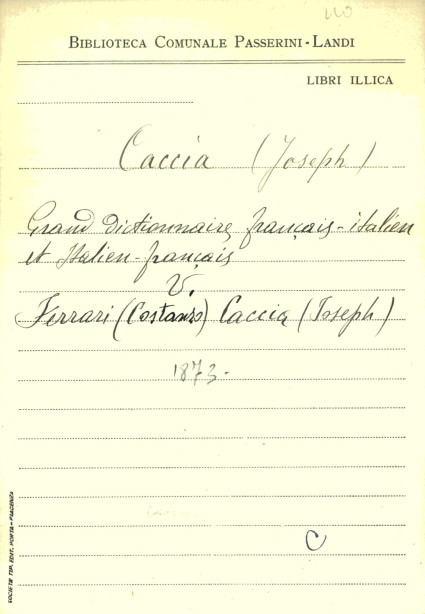 BIBLIOTECA COMUNALE PASSERINI-LANDI
LIBRI ILLICA
Caccia (Joseph)
Grand dictionnaire français-italien
et Italien-français
V.
Ferrari (Costanzo) Caccia (Joseph)
1873-
C
SOCIETÀ TIP. EDIT. PORTA-PIACENZA